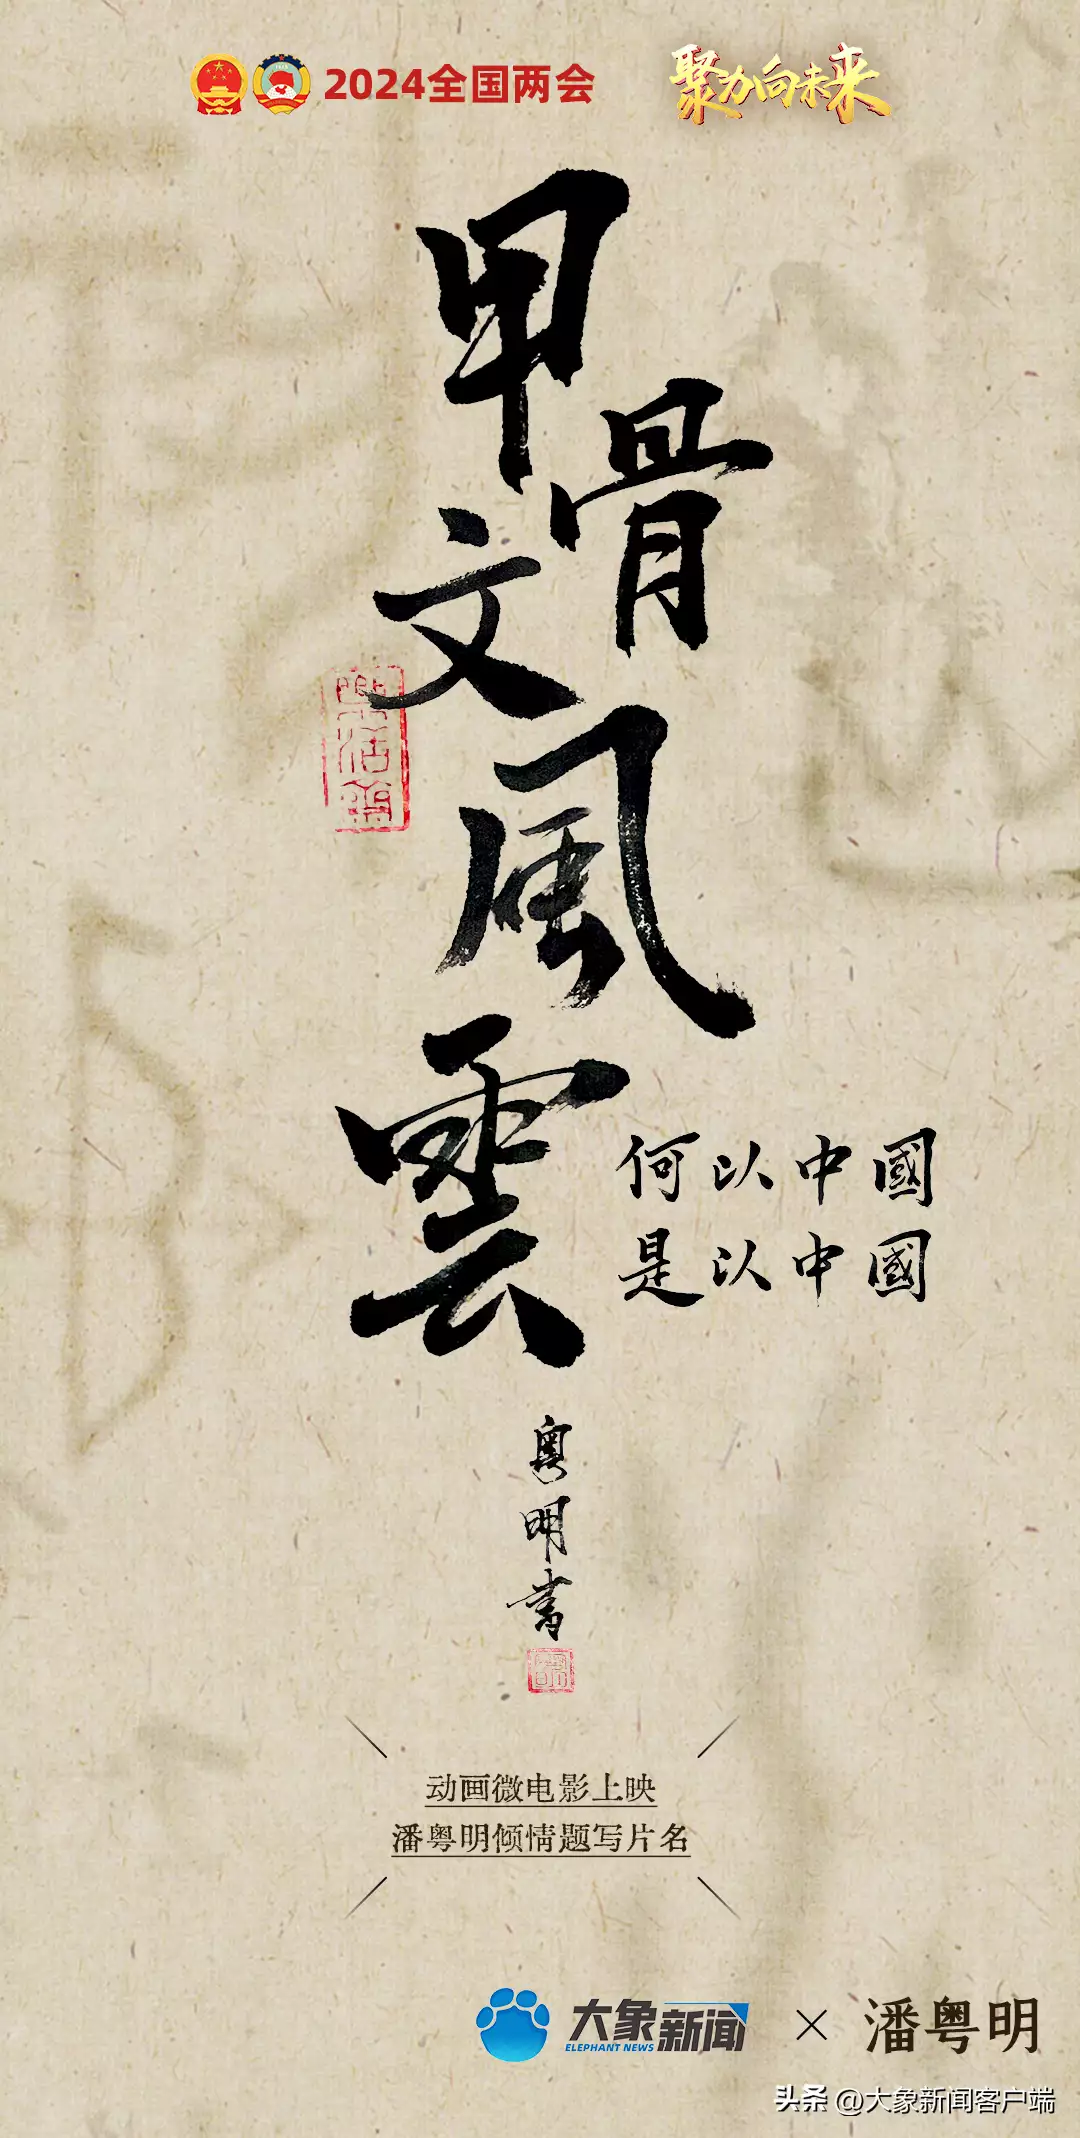 2024全国两会
聚力向未来
甲骨文風雲
何以中國
是以中國
粤明書
动画微电影上映
潘粤明倾情题写片名
大象新闻
ELEPHANT NEWS
× 潘粤明
头条 @大象新闻客户端